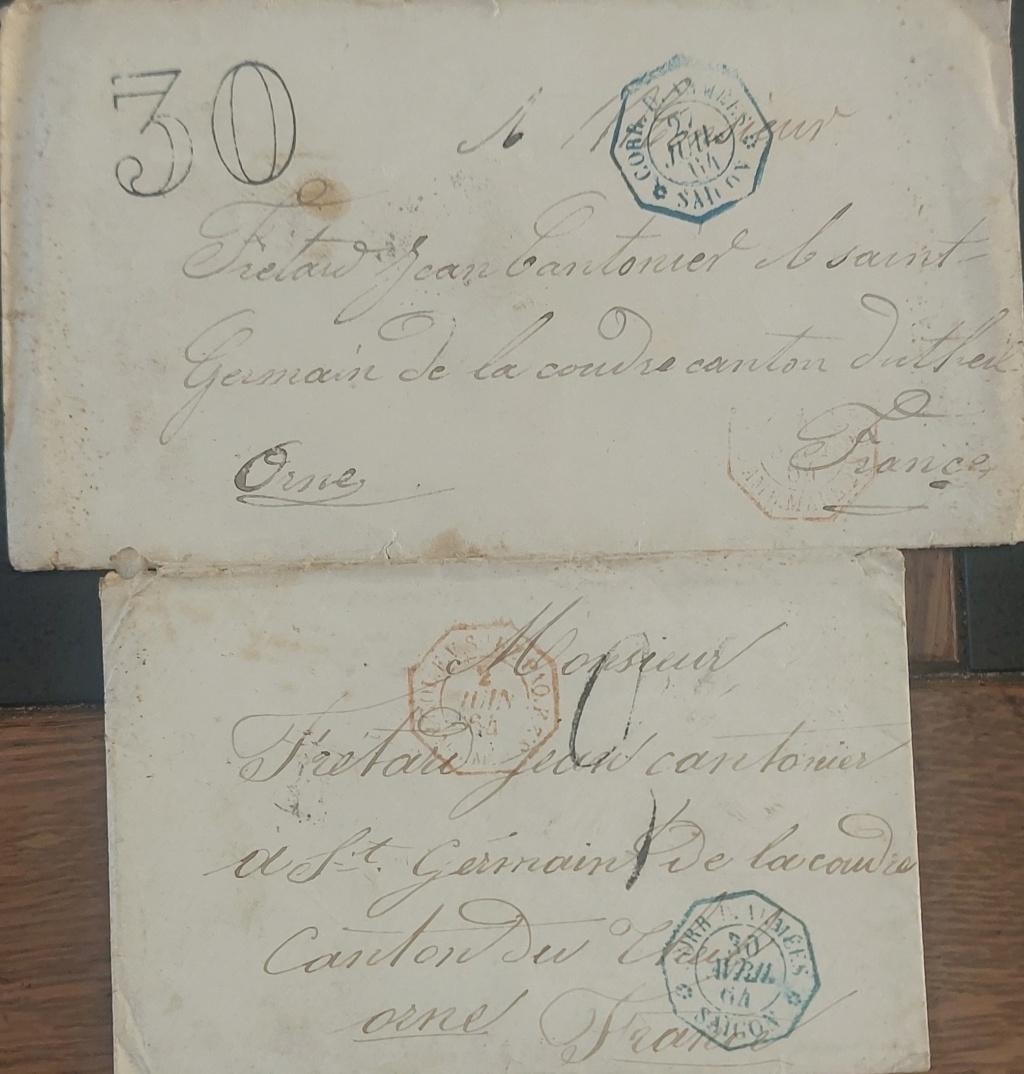 30
CORR. D. ARMÉES
27
JUIL
64
SAIGON
A Monsieur
Frétard Jean Cantonier A saint-
Germain de la coudre canton du theil
Orne France
Monsieur
2
JUIN
64
Frétard jean cantonier
a St. Germain de la coudre
Canton du Theil
CORR. D. ARMÉES
30
AVRIL
64
SAIGON
orne France